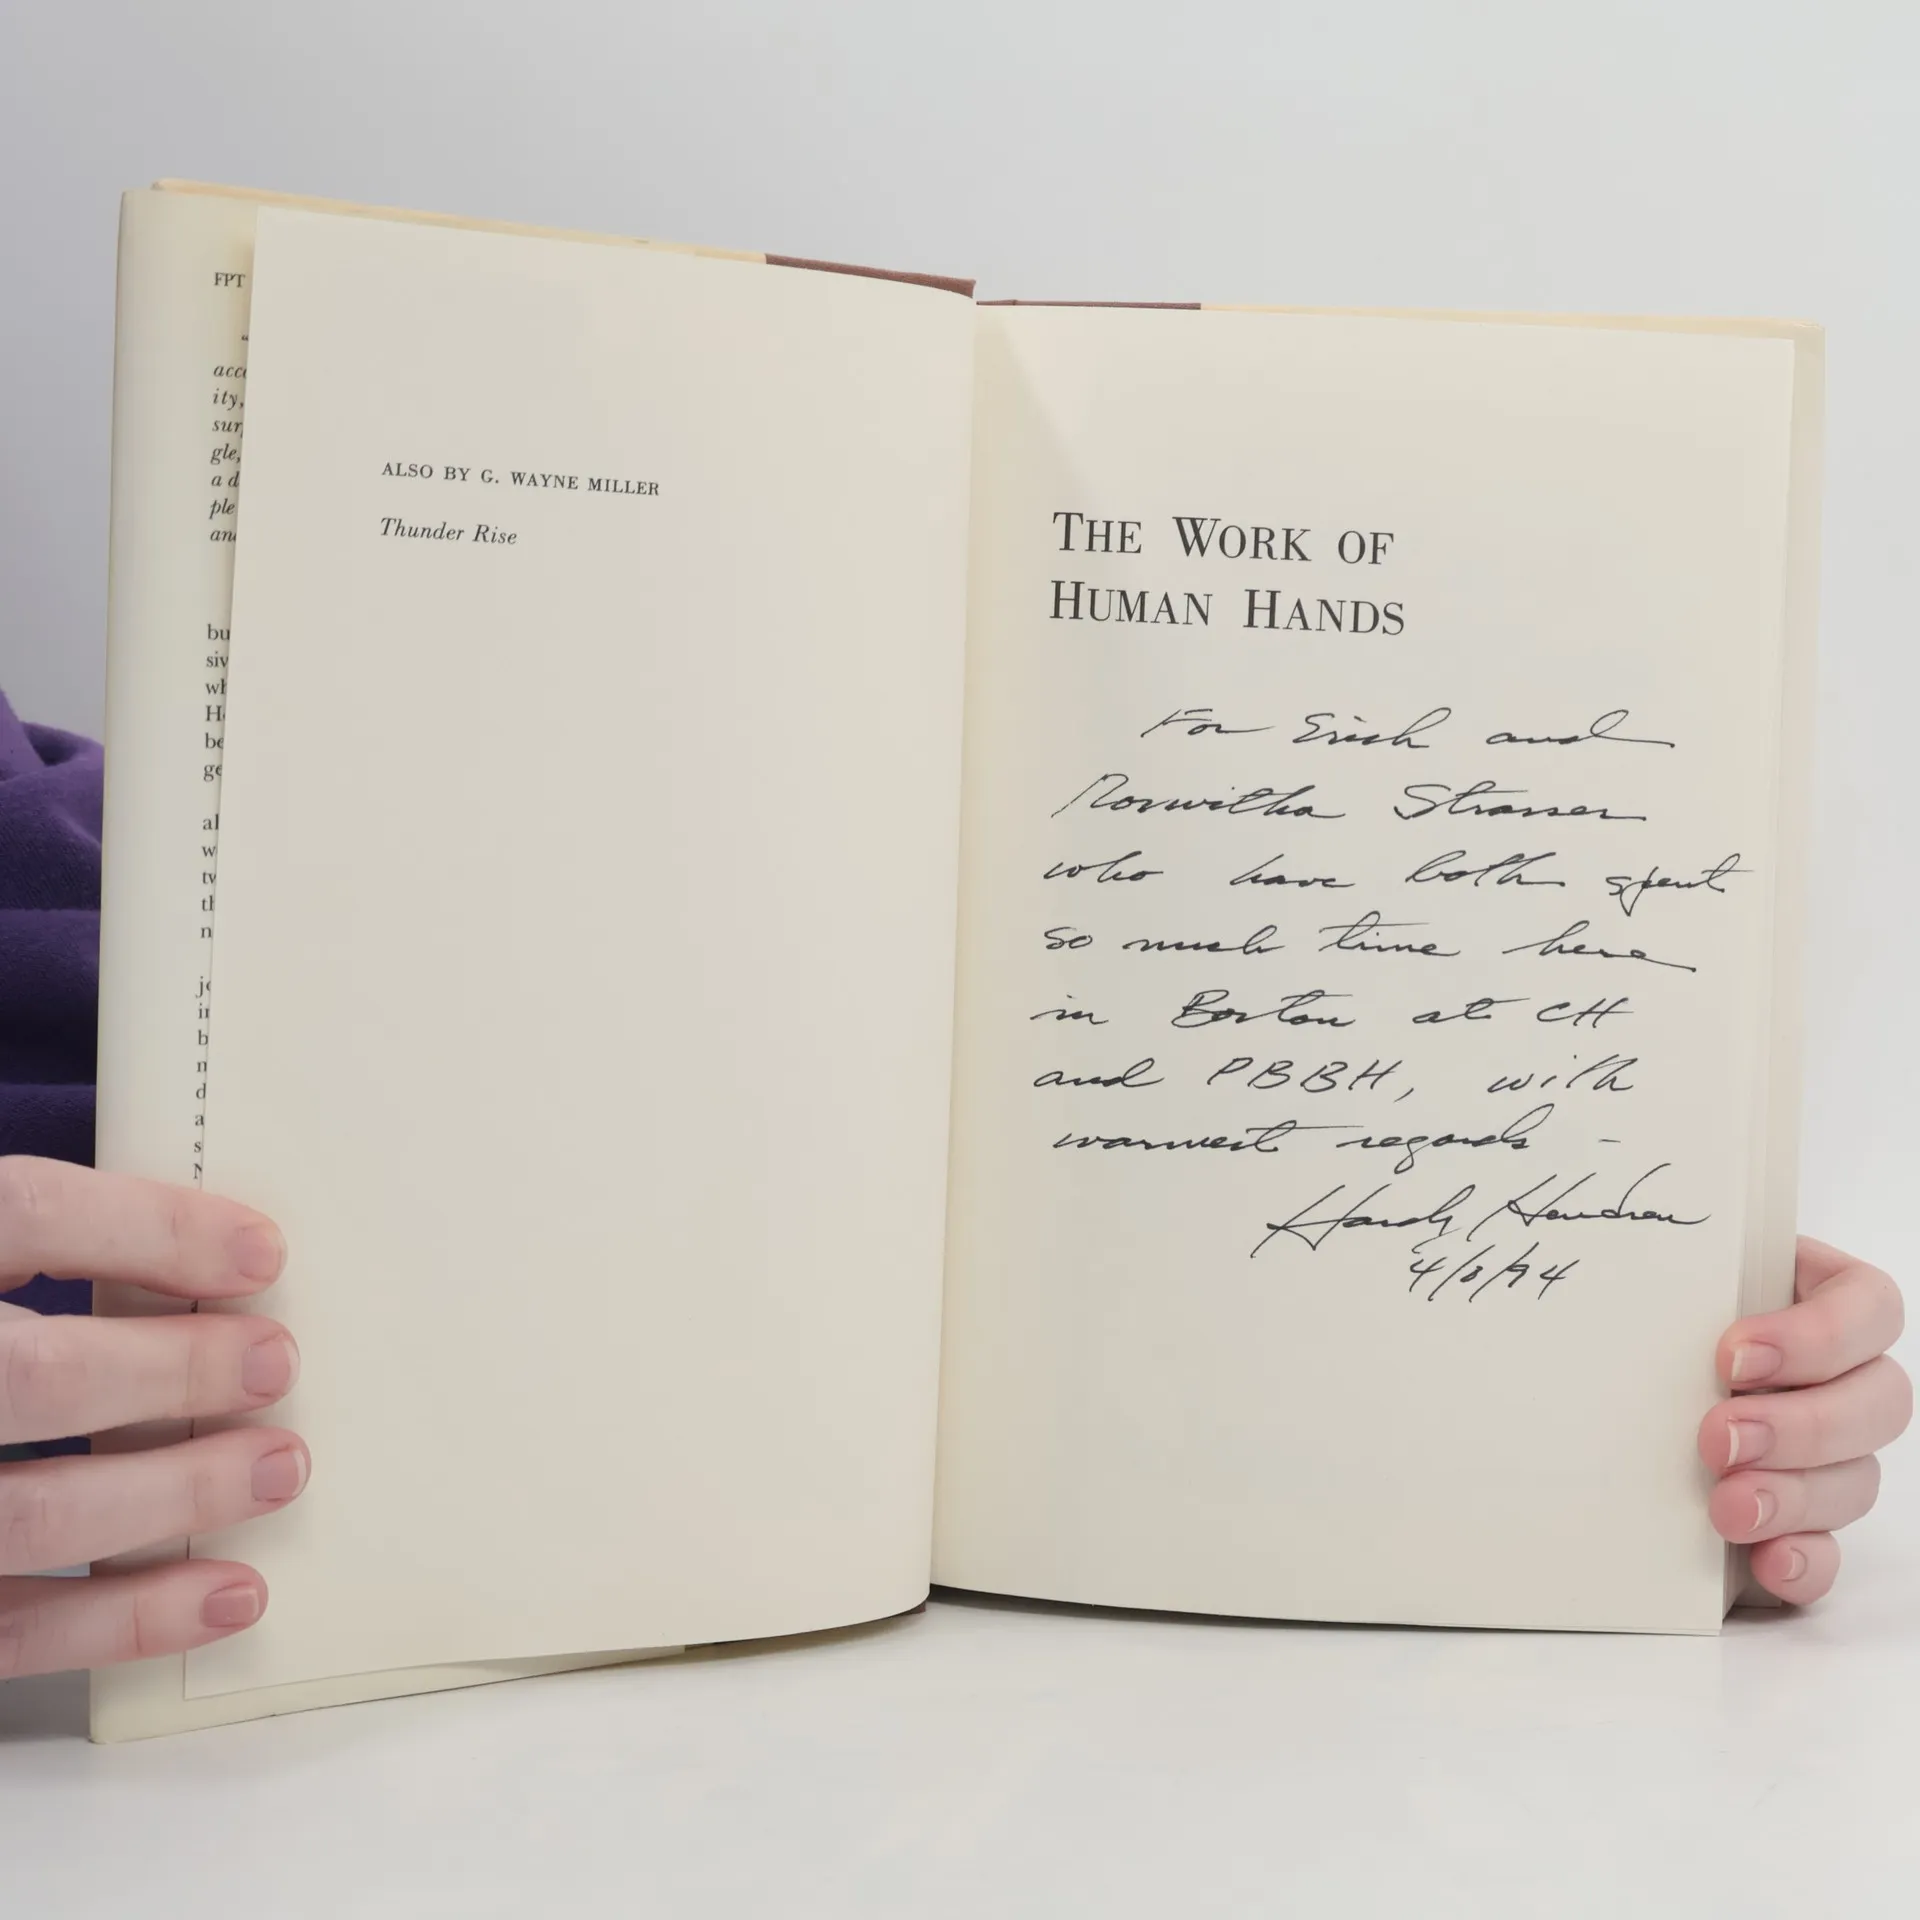 FPT
“
acc
ity,
sur
gle,
a d
ple
an
bu
siv
wh
H
be
ge
al
w
tw
th
n
j
i
b
n
d
a
s
N
ALSO BY G. WAYNE MILLER
Thunder Rise
THE WORK OF
HUMAN HANDS
For Erich and
Roswitha Strasser
who have both spent
so much time here
in Boston at CH
and PBBH, with
warmest regards -
Hardy Hendren
4/8/94